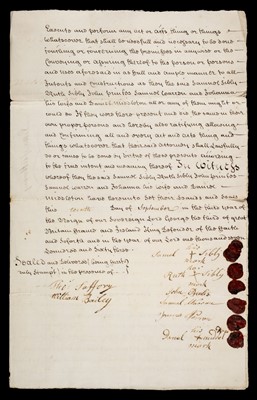 Execute and perform any act or acts thing or things
whatsoever that shall be needful and necessary to be done
touching or concerning the premises in anywise or the
Conveying or assuring thereof to the person or persons
and uses aforesaid in as full and ample manner to all
Intents and constructions as they the said Samuel Sibly
Ruth Sibly John
Samuel and Johanna
his wife and Samuel all or any of them might or
could do if they were there present and did the same in their
own proper persons and hereby also ratifying allowing
and Confirming all and every act and acts thing and
things whatsoever that their said Attorney shall lawfully
do or cause to be done by virtue of these presents according
to the true intent and meaning thereof In Witness
whereof they the said Samuel Sibly Ruth Sibly John
Samuel and Johanna his wife and Samuel
have hereunto set their hands and Seals
this day of September in the third year of
the Reign of our Sovereign Lord George the third of great
Britain France and Ireland King Defender of the faith
and so forth and in the year of our Lord one thousand seven
hundred and sixty three
Sealed and Delivered (being first
duly Stampt) in the presence of
Saffery
William Bailey
Samuel X Sibly
mark
Ruth X Sibly
mark
John
Samuel
his
mark